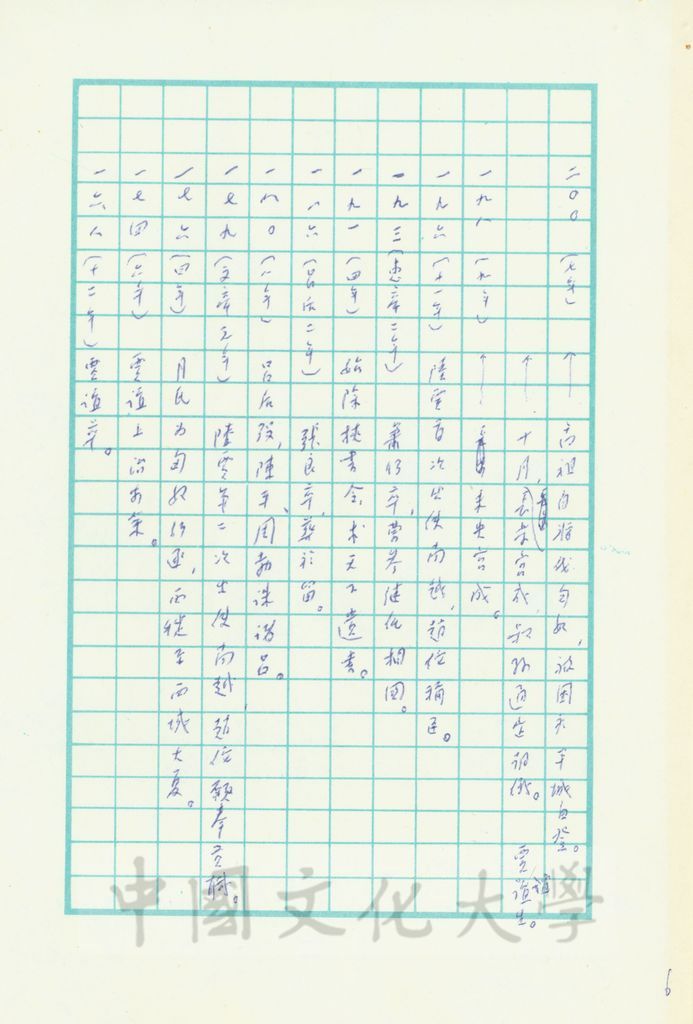 二〇〇（七年）↑高祖自將伐匈奴，被圍於平城白登。
↑十月，長樂宮成，叔孫通定朝儀。賈誼生。
一九八（九年）↑未央宮成。
一九六（十一年）陸賈首次出使南越，趙佗稱臣。
一九三（惠帝二年）蕭何卒，曹參繼位相國。
一九一（四年）始除挾書令，求天下遺書。
一八六（呂后二年）張良卒，葬於留。
一八〇（八年）呂后歿，陳平、周勃誅諸呂。
一七九（文帝元年）陸賈第二次出使南越，趙佗願奉貢職。
一七六（四年）月氏為匈奴所逐，西徙至西域大夏。
一七四（六年）賈誼上治安策。
一六八（十二年）賈誼卒。
中國文化大學
6